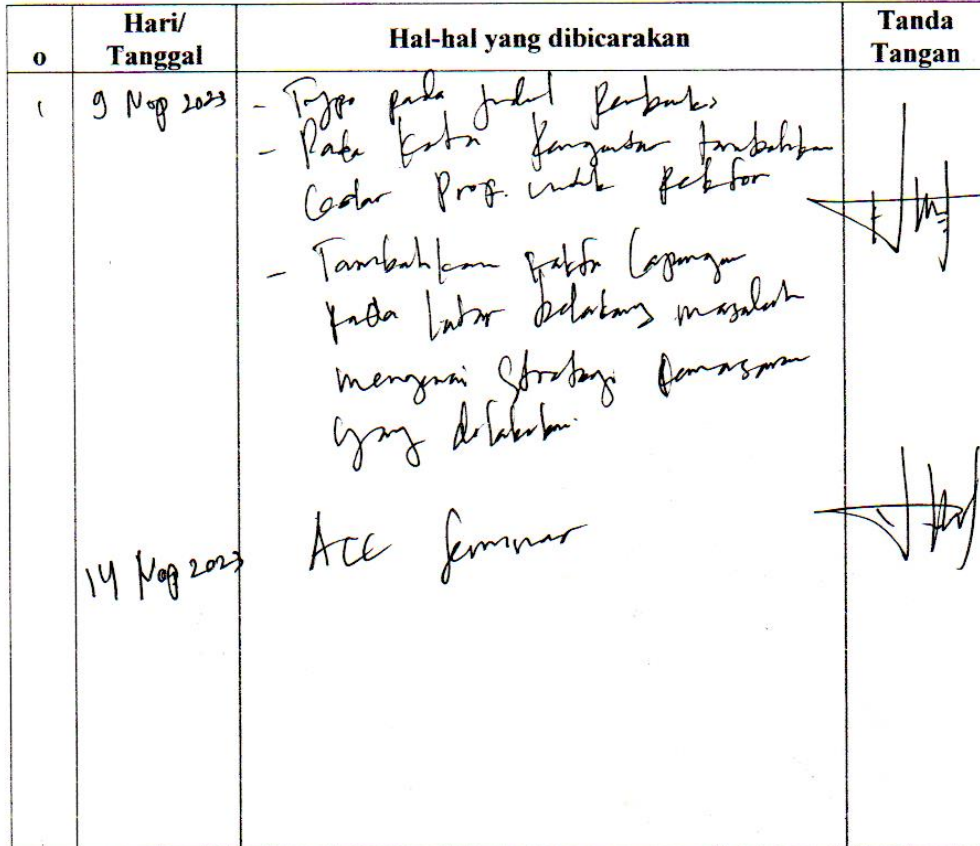 o
Hari/
Tanggal
Hal-hal yang dibicarakan
Tanda
Tangan
1 9 Nop 2023 - Typo pada judul
- Pada Kata Pengantar tambahkan
Gelar Prof. untuk Rektor
- Tambahkan fakta lapangan
pada latar belakang masalah
mengenai strategi pemasaran
yang dilakukan.
14 Nop 2023 ACC Seminar